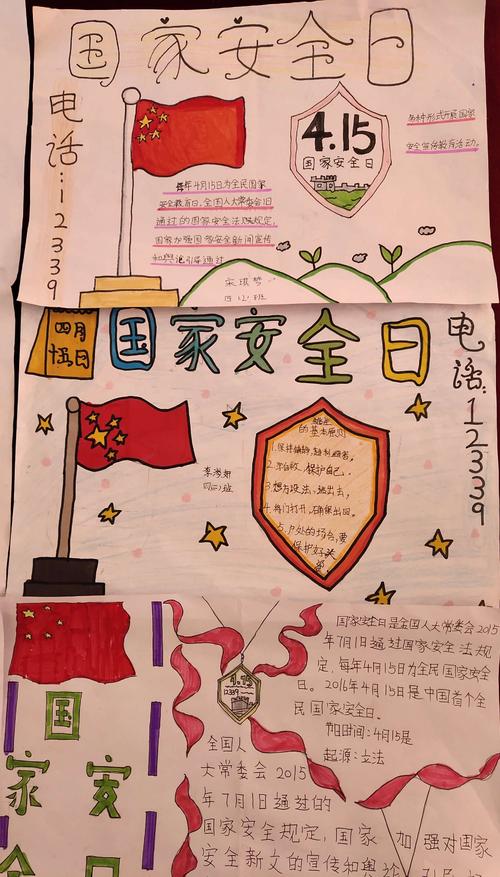 国家安全日
电话：12339
4.15
国家安全日
多种形式开展国家
安全宣传教育活动。
每年4月15日为全民国家
安全教育日，全国人大常委会1日
通过的国家安全法规规定，
国家加强国家安全新闻宣传
和舆论引导通过
四（2）班
四月
十五日
国家安全日
电话：12339
四（二）班
的基本原则
1.保持镇静，趋利避害。
保护自己.
3.想方设法，逃出去，
保护好头
国家安全日是全国人大常委会2015
年7月1日通过国家安全法规
定，每年4月15日为全民国家安全
日。2016年4月15日是中国首个全
民国家安全日。
节日时间：4月15是
起源：立法
4.15
12339
国
家安
全日
全国人
大常委会2015
年7月1日通过的
国家安全规定，国家加强对国家
安全新文的宣传和舆论引导